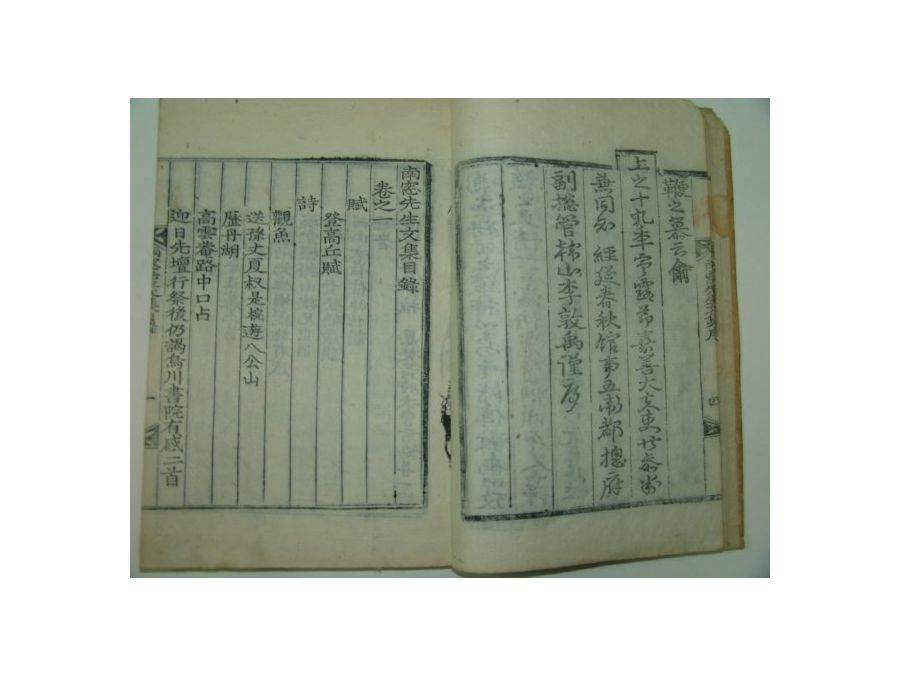 鞭之慕云爾
上之十九年寒露節嘉善大夫吏曹參判
兼同知 經筵春秋館事五衛都摠府
副摠管韓山李敦禹謹序
四
南窓先生文集目錄
卷之一
賦
登高丘賦
詩
觀魚
送孫丈厦叔是椀遊八公山
歷丹湖
高雲菴路中口占
迎日先壇行祭後仍謁烏川書院有感二首